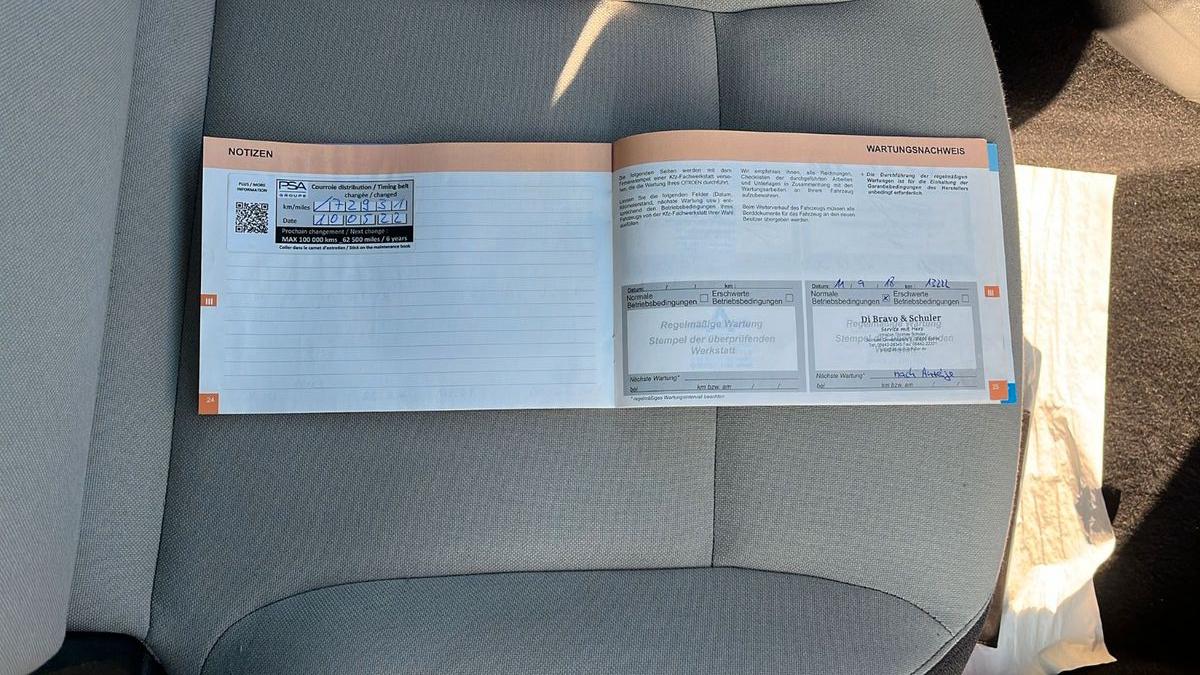 NOTIZEN
PLUS / MORE
INFORMATION
PSA
GROUPE
Courroie distribution / Timing belt
changée / changed
km/miles 172951
Date 100522
Prochain changement / Next change :
MAX 100 000 kms_62 500 miles / 6 years
Coller dans le carnet d'entretien / Stick on the maintenance book
III
24
WARTUNGSNACHWEIS
Die folgenden Seiten werden mit dem
Firmenstempel einer Kfz-Fachwerkstatt verse-
hen, die die Wartung Ihres CITROËN durchführt.
Lassen Sie die folgenden Felder (Datum,
Kilometerstand, nächste Wartung usw.) ent-
sprechend den Betriebsbedingungen Ihres
Fahrzeugs von der Kfz-Fachwerkstatt Ihrer Wahl
ausfüllen.
Wir empfehlen Ihnen, alle Rechnungen,
Checklisten der durchgeführten Arbeiten
und Unterlagen in Zusammenhang mit den
Wartungsarbeiten an Ihrem Fahrzeug
aufzubewahren.
Beim Weiterverkauf des Fahrzeugs müssen alle
Borddokumente für das Fahrzeug an den neuen
Besitzer übergeben werden.
Die Durchführung der regelmäßigen
Wartungen ist für die Einhaltung der
Garantiebedingungen des Herstellers
unbedingt erforderlich.
Datum: / / km:
Normale
Betriebsbedingungen
Erschwerte
Betriebsbedingungen
Regelmäßige Wartung
Stempel der überprüfenden
Werkstatt
Nächste Wartung*
bei km bzw. am / /
* regelmäßiges Wartungsintervall beachten
Datum: 11 . 9 . 18 km:
Normale
Betriebsbedingungen
Erschwerte
Betriebsbedingungen
Regelmäßige Wartung
Di Bravo & Schuler
Service mit Herz
Nächste Wartung* nach Anzeige
bei km bzw. am / /
III
25